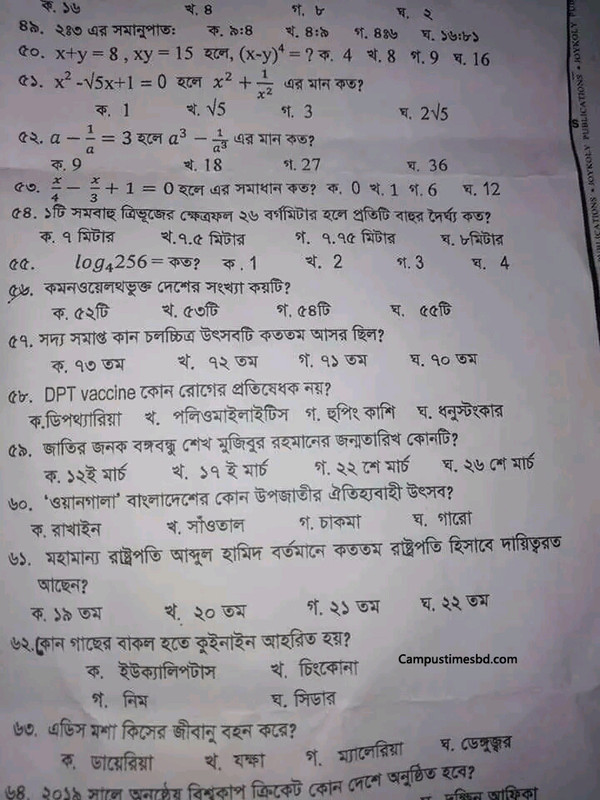 ক. ১৬ খ. ৪ গ. ৮ ঘ. ২
৪৯. ২ঃ৩ এর সমানুপাতঃ ক. ৯:৪ খ. ৪:৯ গ. ৪ঃ৬ ঘ. ১৬:৮১
৫০. x+y = 8 , xy = 15 হলে, (x-y)⁴ = ? ক. 4 খ. 8 গ. 9 ঘ. 16
৫১. x² -√5x+1 = 0 হলে x² + 1/x² এর মান কত?
ক. 1 খ. √5 গ. 3 ঘ. 2√5
৫২. a − 1/a = 3 হলে a³ − 1/a³ এর মান কত?
ক. 9 খ. 18 গ. 27 ঘ. 36
৫৩. x/4 − x/3 + 1 = 0 হলে এর সমাধান কত? ক. 0 খ. 1 গ. 6 ঘ. 12
৫৪. ১টি সমবাহু ত্রিভূজের ক্ষেত্রফল ২৬ বর্গমিটার হলে প্রতিটি বাহুর দৈর্ঘ্য কত?
ক. ৭ মিটার খ.৭.৫ মিটার গ. ৭.৭৫ মিটার ঘ. ৮মিটার
৫৫. log₄256 = কত? ক . 1 খ. 2 গ. 3 ঘ. 4
৫৬. কমনওয়েলথভুক্ত দেশের সংখ্যা কয়টি?
ক. ৫২টি খ. ৫৩টি গ. ৫৪টি ঘ. ৫৫টি
৫৭. সদ্য সমাপ্ত কান চলচ্চিত্র উৎসবটি কততম আসর ছিল?
ক. ৭৩ তম খ. ৭২ তম গ. ৭১ তম ঘ. ৭০ তম
৫৮. DPT vaccine কোন রোগের প্রতিষেধক নয়?
ক.ডিপথ্যারিয়া খ. পলিওমাইলাইটিস গ. হুপিং কাশি ঘ. ধনুস্টংকার
৫৯. জাতির জনক বঙ্গবন্ধু শেখ মুজিবুর রহমানের জন্মতারিখ কোনটি?
ক. ১২ই মার্চ খ. ১৭ ই মার্চ গ. ২২ শে মার্চ ঘ. ২৬ শে মার্চ
৬০. 'ওয়ানগালা' বাংলাদেশের কোন উপজাতীর ঐতিহ্যবাহী উৎসব?
ক. রাখাইন খ. সাঁওতাল গ. চাকমা ঘ. গারো
৬১. মহামান্য রাষ্ট্রপতি আব্দুল হামিদ বর্তমানে কততম রাষ্ট্রপতি হিসাবে দায়িত্বরত
আছেন?
ক. ১৯ তম খ. ২০ তম গ. ২১ তম ঘ. ২২ তম
৬২.কোন গাছের বাকল হতে কুইনাইন আহরিত হয়?
ক. ইউক্যালিপটাস খ. চিংকোনা
গ. নিম ঘ. সিডার
Campustimesbd.com
৬৩. এডিস মশা কিসের জীবানু বহন করে?
ক. ডায়েরিয়া খ. যক্ষা গ. ম্যালেরিয়া ঘ. ডেঙ্গুজ্বর
৬৪. ২০১৯ সালে অনুষ্ঠেয় বিশ্বকাপ ক্রিকেট কোন দেশে অনুষ্ঠিত হবে?
দক্ষিন আফ্রিকা
PUBLICATIONS • JOYKOLY PUBLICATIONS • JOYKOLY PU